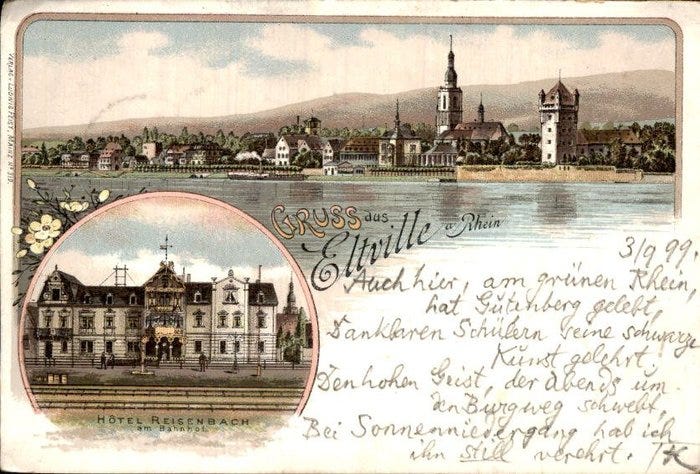 VERLAG v. LUDWIG FEIST, MAINZ Nº 310.
GRUSS aus
Eltville a Rhein
HÔTEL REISENBACH
am Bahnhof.
3/9 99.
Auch hier, am grünen Rhein,
hat Gutenberg gelebt,
Dankbaren Schülern seine schwarze
Kunst gelehrt
Den hohen Geist, der Abends um
den Burgweg schwebt,
Bei Sonnenniedergang hab ich
ihn still verehrt.